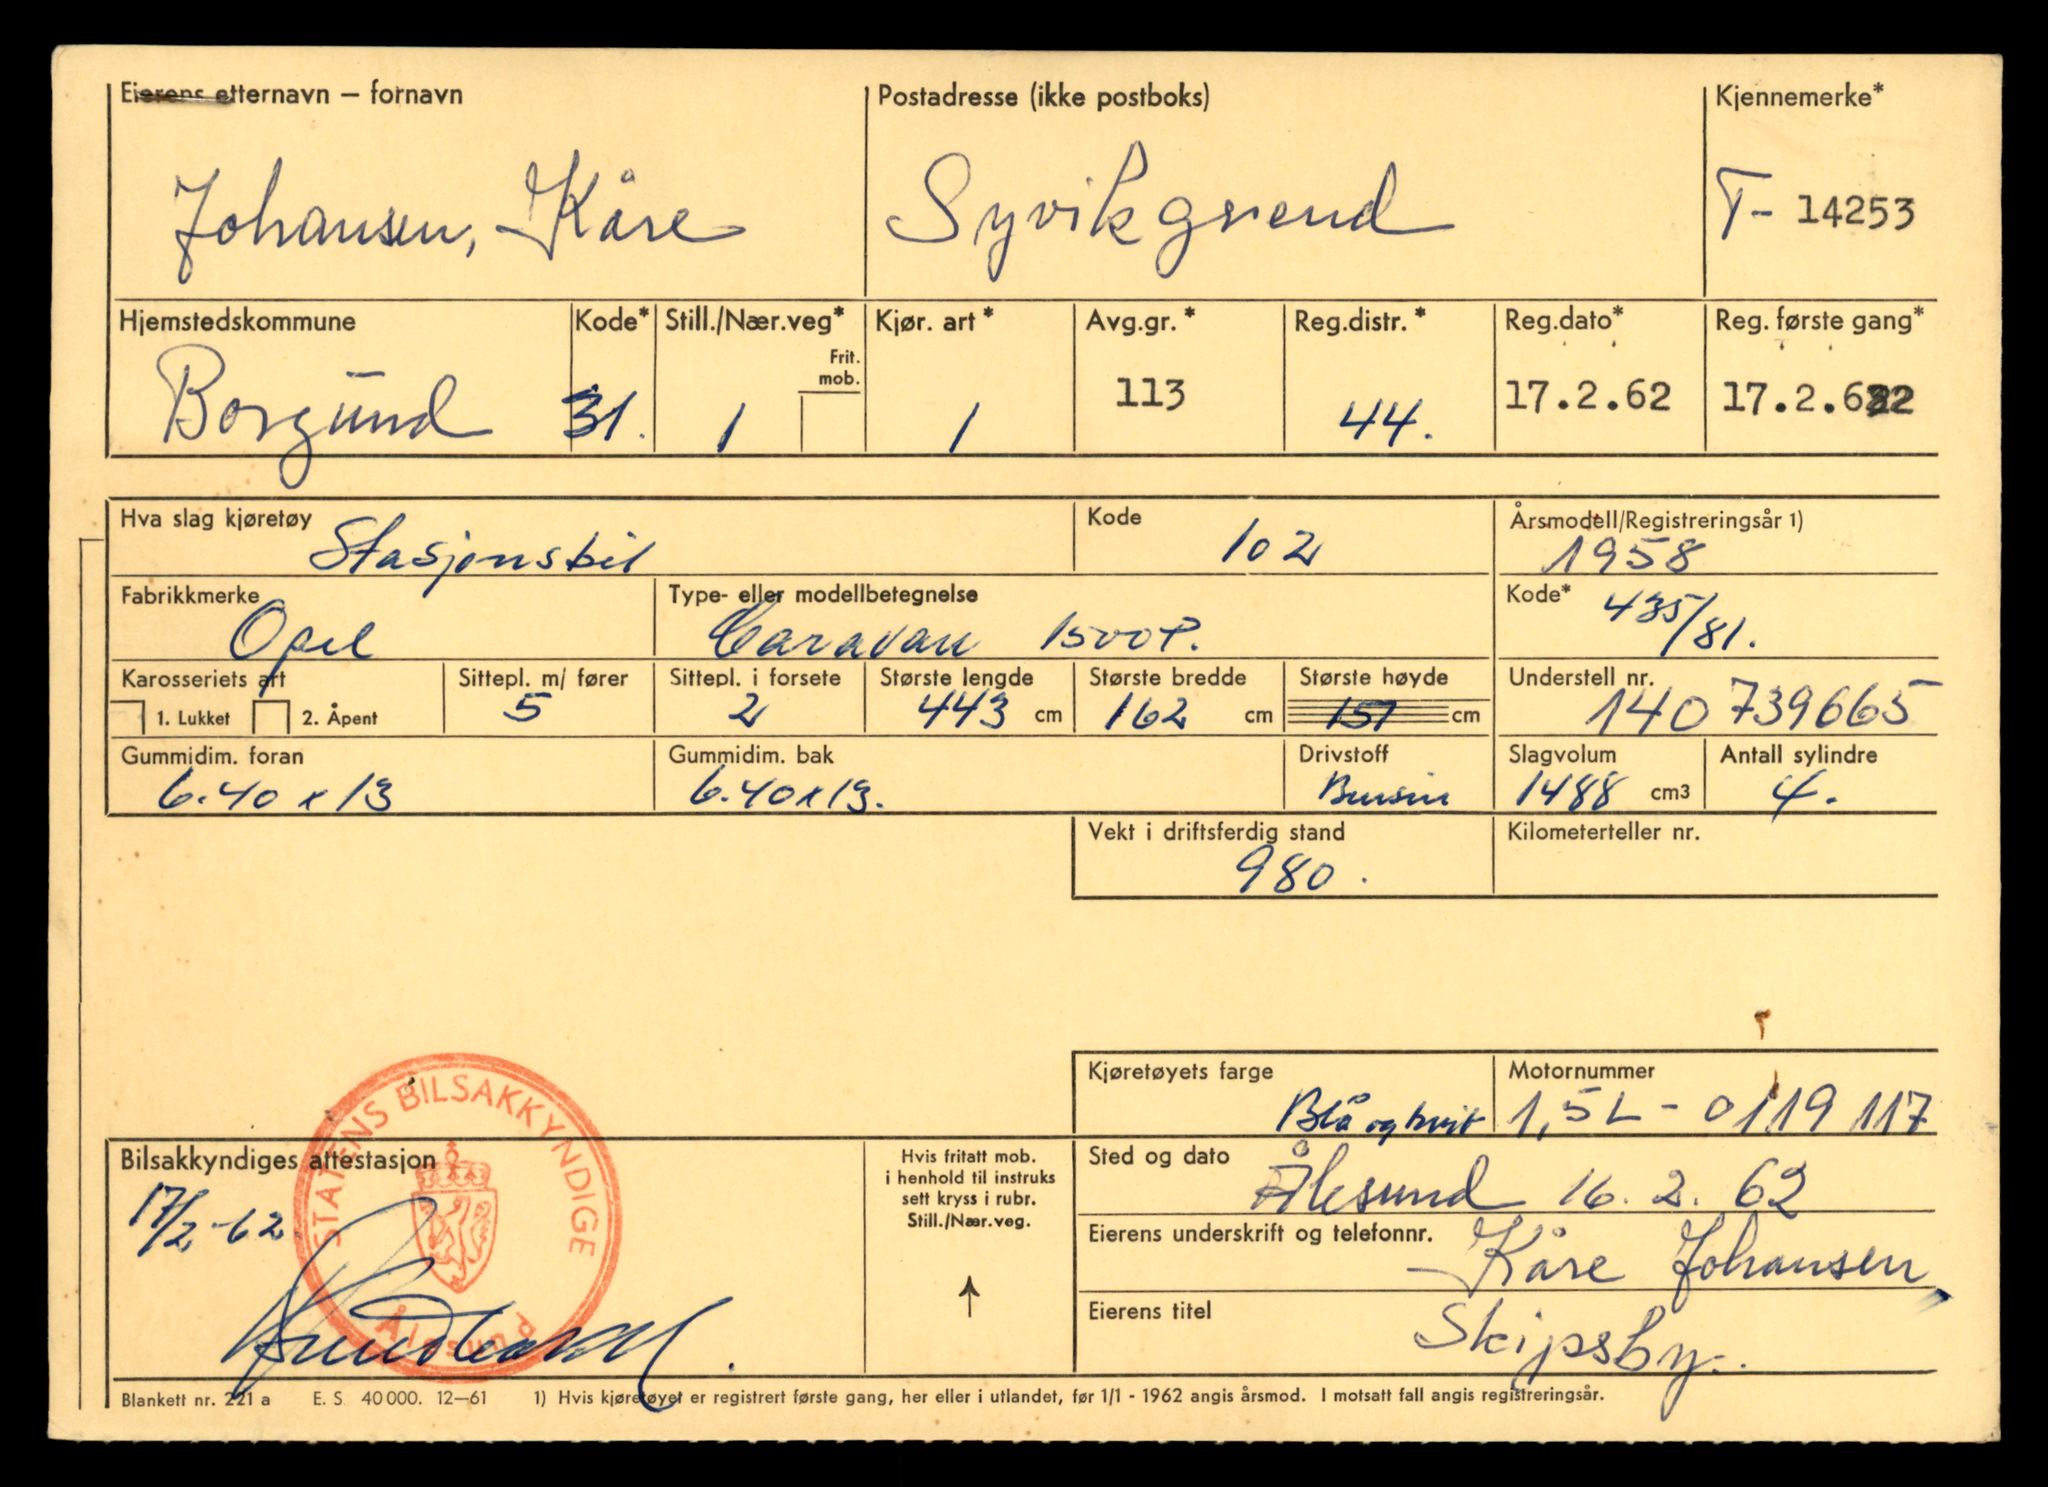 Eierens etternavn – fornavn Postadresse (ikke postboks) Kjennemerke*
Johansen, Kåre Syvikgrend T- 14253
Hjemstedskommune Kode* Still./Nær.veg* Kjør. art * Avg.gr. * Reg.distr. * Reg.dato* Reg. første gang*
Frit.
mob.
Borgund 31. 1 1 113 44. 17.2.62 17.2.62
Hva slag kjøretøy Kode Årsmodell/Registreringsår 1)
Stasjonsbil 102 1958
Fabrikkmerke Type- eller modellbetegnelse Kode*
Opel Caravan 1500P. 435/81.
Karosseriets art Sittepl. m/ fører Sittepl. i forsete Største lengde Største bredde Største høyde Understell nr.
1. Lukket 2. Åpent 5 2 443 cm 162 cm 151 cm 140 739665
Gummidim. foran Gummidim. bak Drivstoff Slagvolum Antall sylindre
6.40 x 13 6.40x13. Bensin 1488 cm3 4.
Vekt i driftsferdig stand Kilometerteller nr.
980.
Kjøretøyets farge Motornummer
Blå og hvit 1,5L - 0119 117
STATENS BILSAKKYNDIGE
Ålesund
Bilsakkyndiges attestasjon
17/2-62
Hvis fritatt mob.
i henhold til instruks
sett kryss i rubr.
Still./Nær.veg.
Sted og dato
Ålesund 16. 2. 62
Eierens underskrift og telefonnr.
Kåre Johansen
Eierens titel
Skipsby.
Blankett nr. 221 a E. S. 40 000. 12—61 1) Hvis kjøretøyet er registrert første gang, her eller i utlandet, før 1/1 - 1962 angis årsmod. I motsatt fall angis registreringsår.